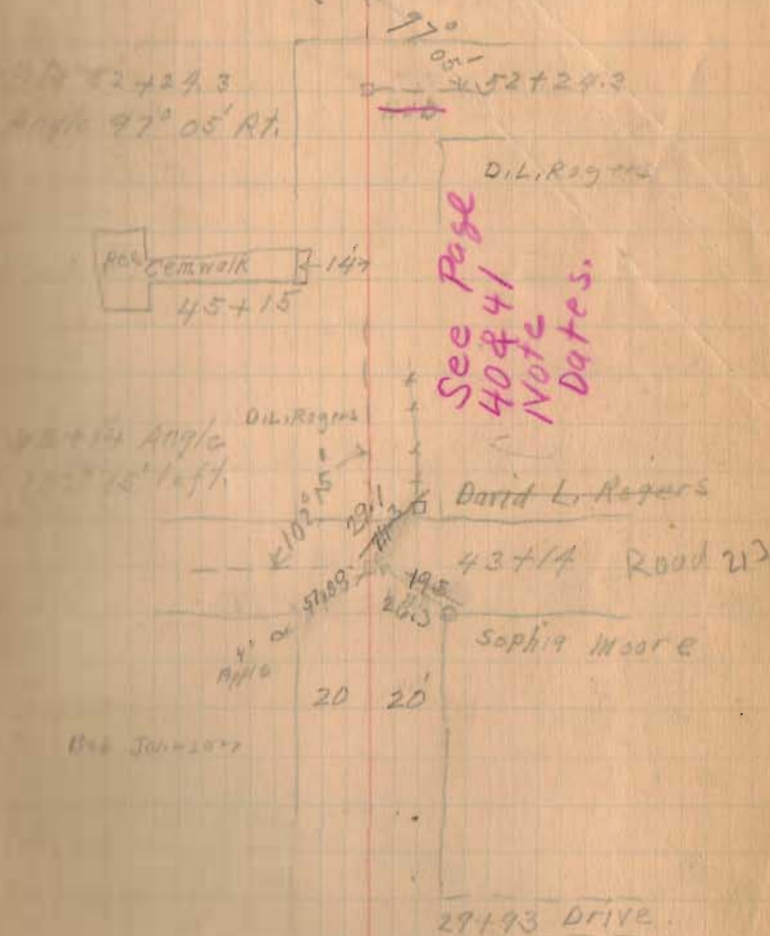 97°
05'
52+24.3
52+24.3
Angle 97° 05' Rt.
D.L. Rogers
Cemwalk
14
45+15
See Page
40 & 41
Note
Dates.
D.L. Rogers
43+14 Angle
102° 15' left.
102° 15'
29.1
David L. Rogers
43+14 Road 21
19.5
26.3
57.89
4'
Apple
Sophia Moore
20 20'
Bob Johnson
29+93 Drive.